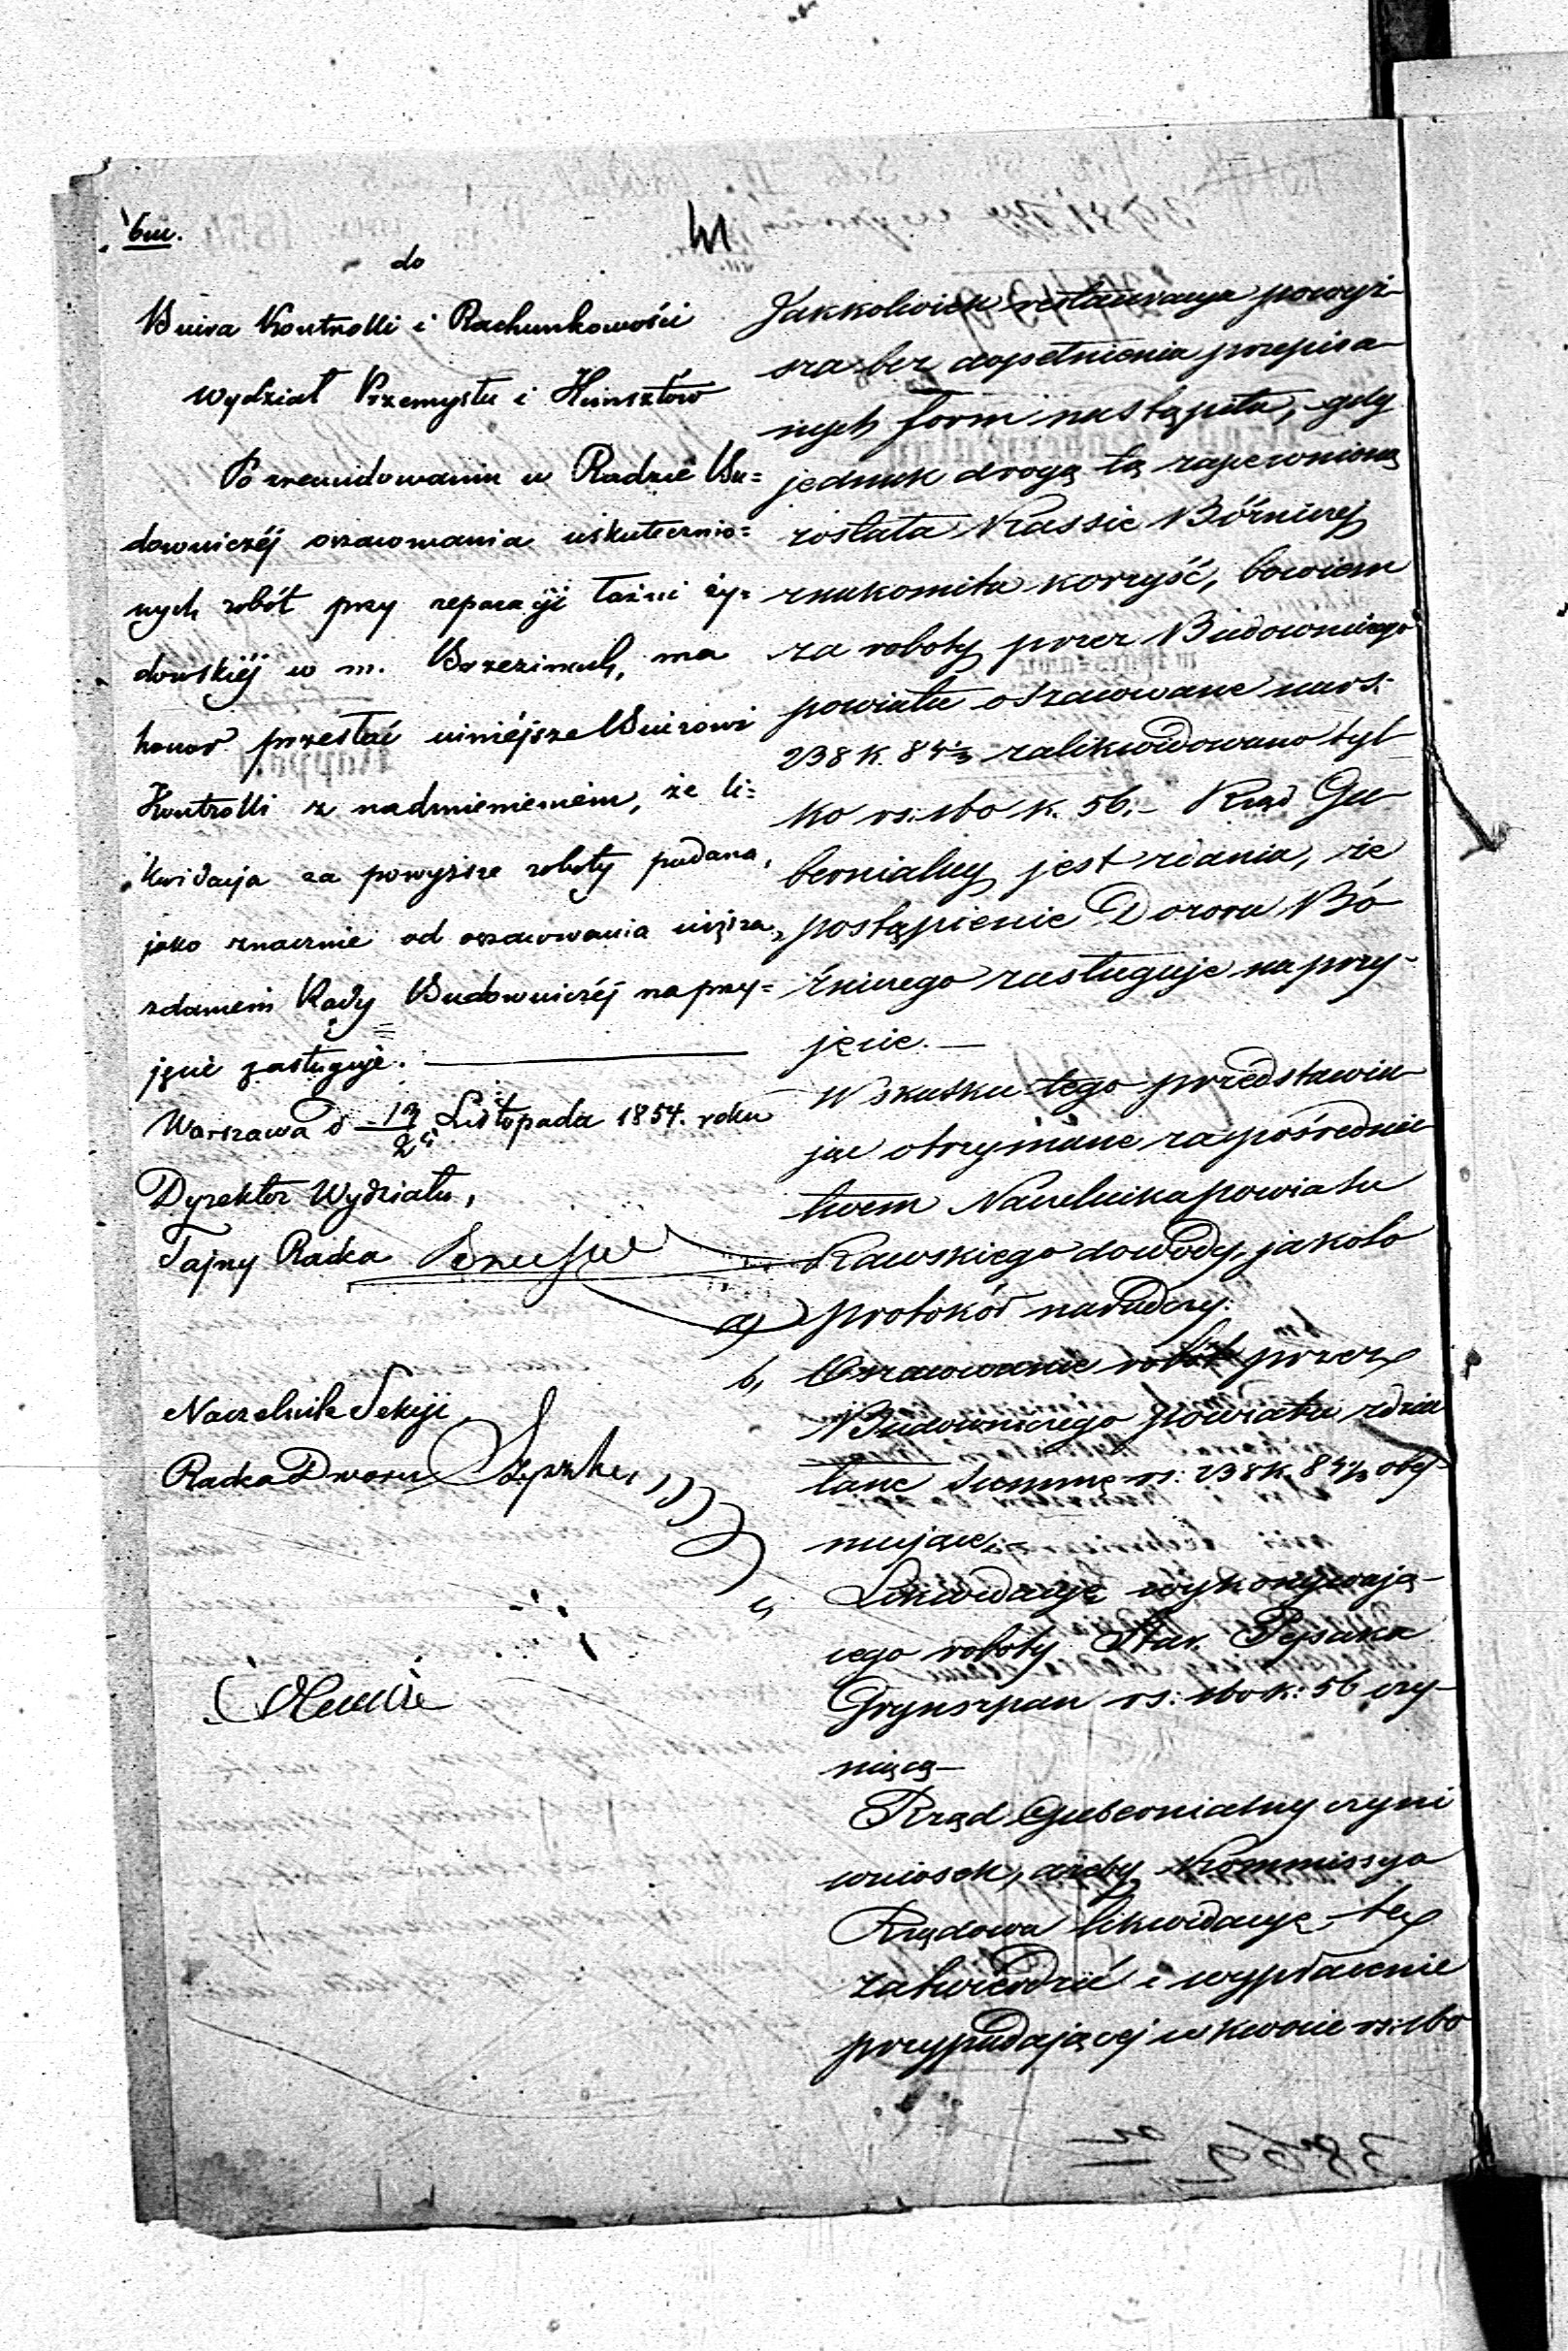 bm.
do
Biura Kontrolli i Rachunkowości
Wydział Przemysłu i Kunsztów
Po zrewidowaniu w Radzie Bu=
downiczéj oszacowania uskutecznio=
nych robót przy reparacyi łaźni ży=
dowskiéj w m. Brzezinach, ma
honor przesłać niniéjsze Biurowi
Kontrolli z nadmienieniem, że li=
kwidacja za powyższe roboty podana,
jako znacznie od oszacowania niższa,
zdaniem Rady Budowniczéj na przy=
jęcie zasługuje.
Warszawa d 12/24 Listopada 1854. roku
Dyrektor Wydziału,
Tajny Radca
Naczelnik Sekcji
Radca Dworu
Jakkolwiek restauracya powyż-
sza bez dopełnienia przepisa-
nych form nastąpiła, gdy
jednak drogą tą zapewnioną
została Kassie Bóżniczej
znakomita korzyść, bowiem
za roboty przez Budowniczego
powiatu oszacowane na rs:
238 k. 84½ zalikwidowano tyl-
ko rs: 160 k. 56.- Rząd Gu-
bernialny jest zdania, że
postąpienie Dozoru Bó-
żniczego zasługuje na przy-
jęcie.—
W skutku tego przedstawia-
jąc otrzymane za pośrednic-
twem Naczelnika powiatu
Rawskiego dowody, jako to
a) protokół naradczy:
b, Oszacowanie robót przez
Budowniczego powiatu zdzia-
łane Summę rs: 238 k. 84½ obej-
mujące,-
c, Likwidacyę wykonywają-
cego roboty Star. Pejsaka
Grynszpan rs: 160 k: 56 czy-
niącą—
Rząd Gubernialny czyni
wniosek, ażeby Kommissya
Rządowa likwidacyę tę
zatwierdzić i wypłacenie
przypadającej w kwocie rs: 160